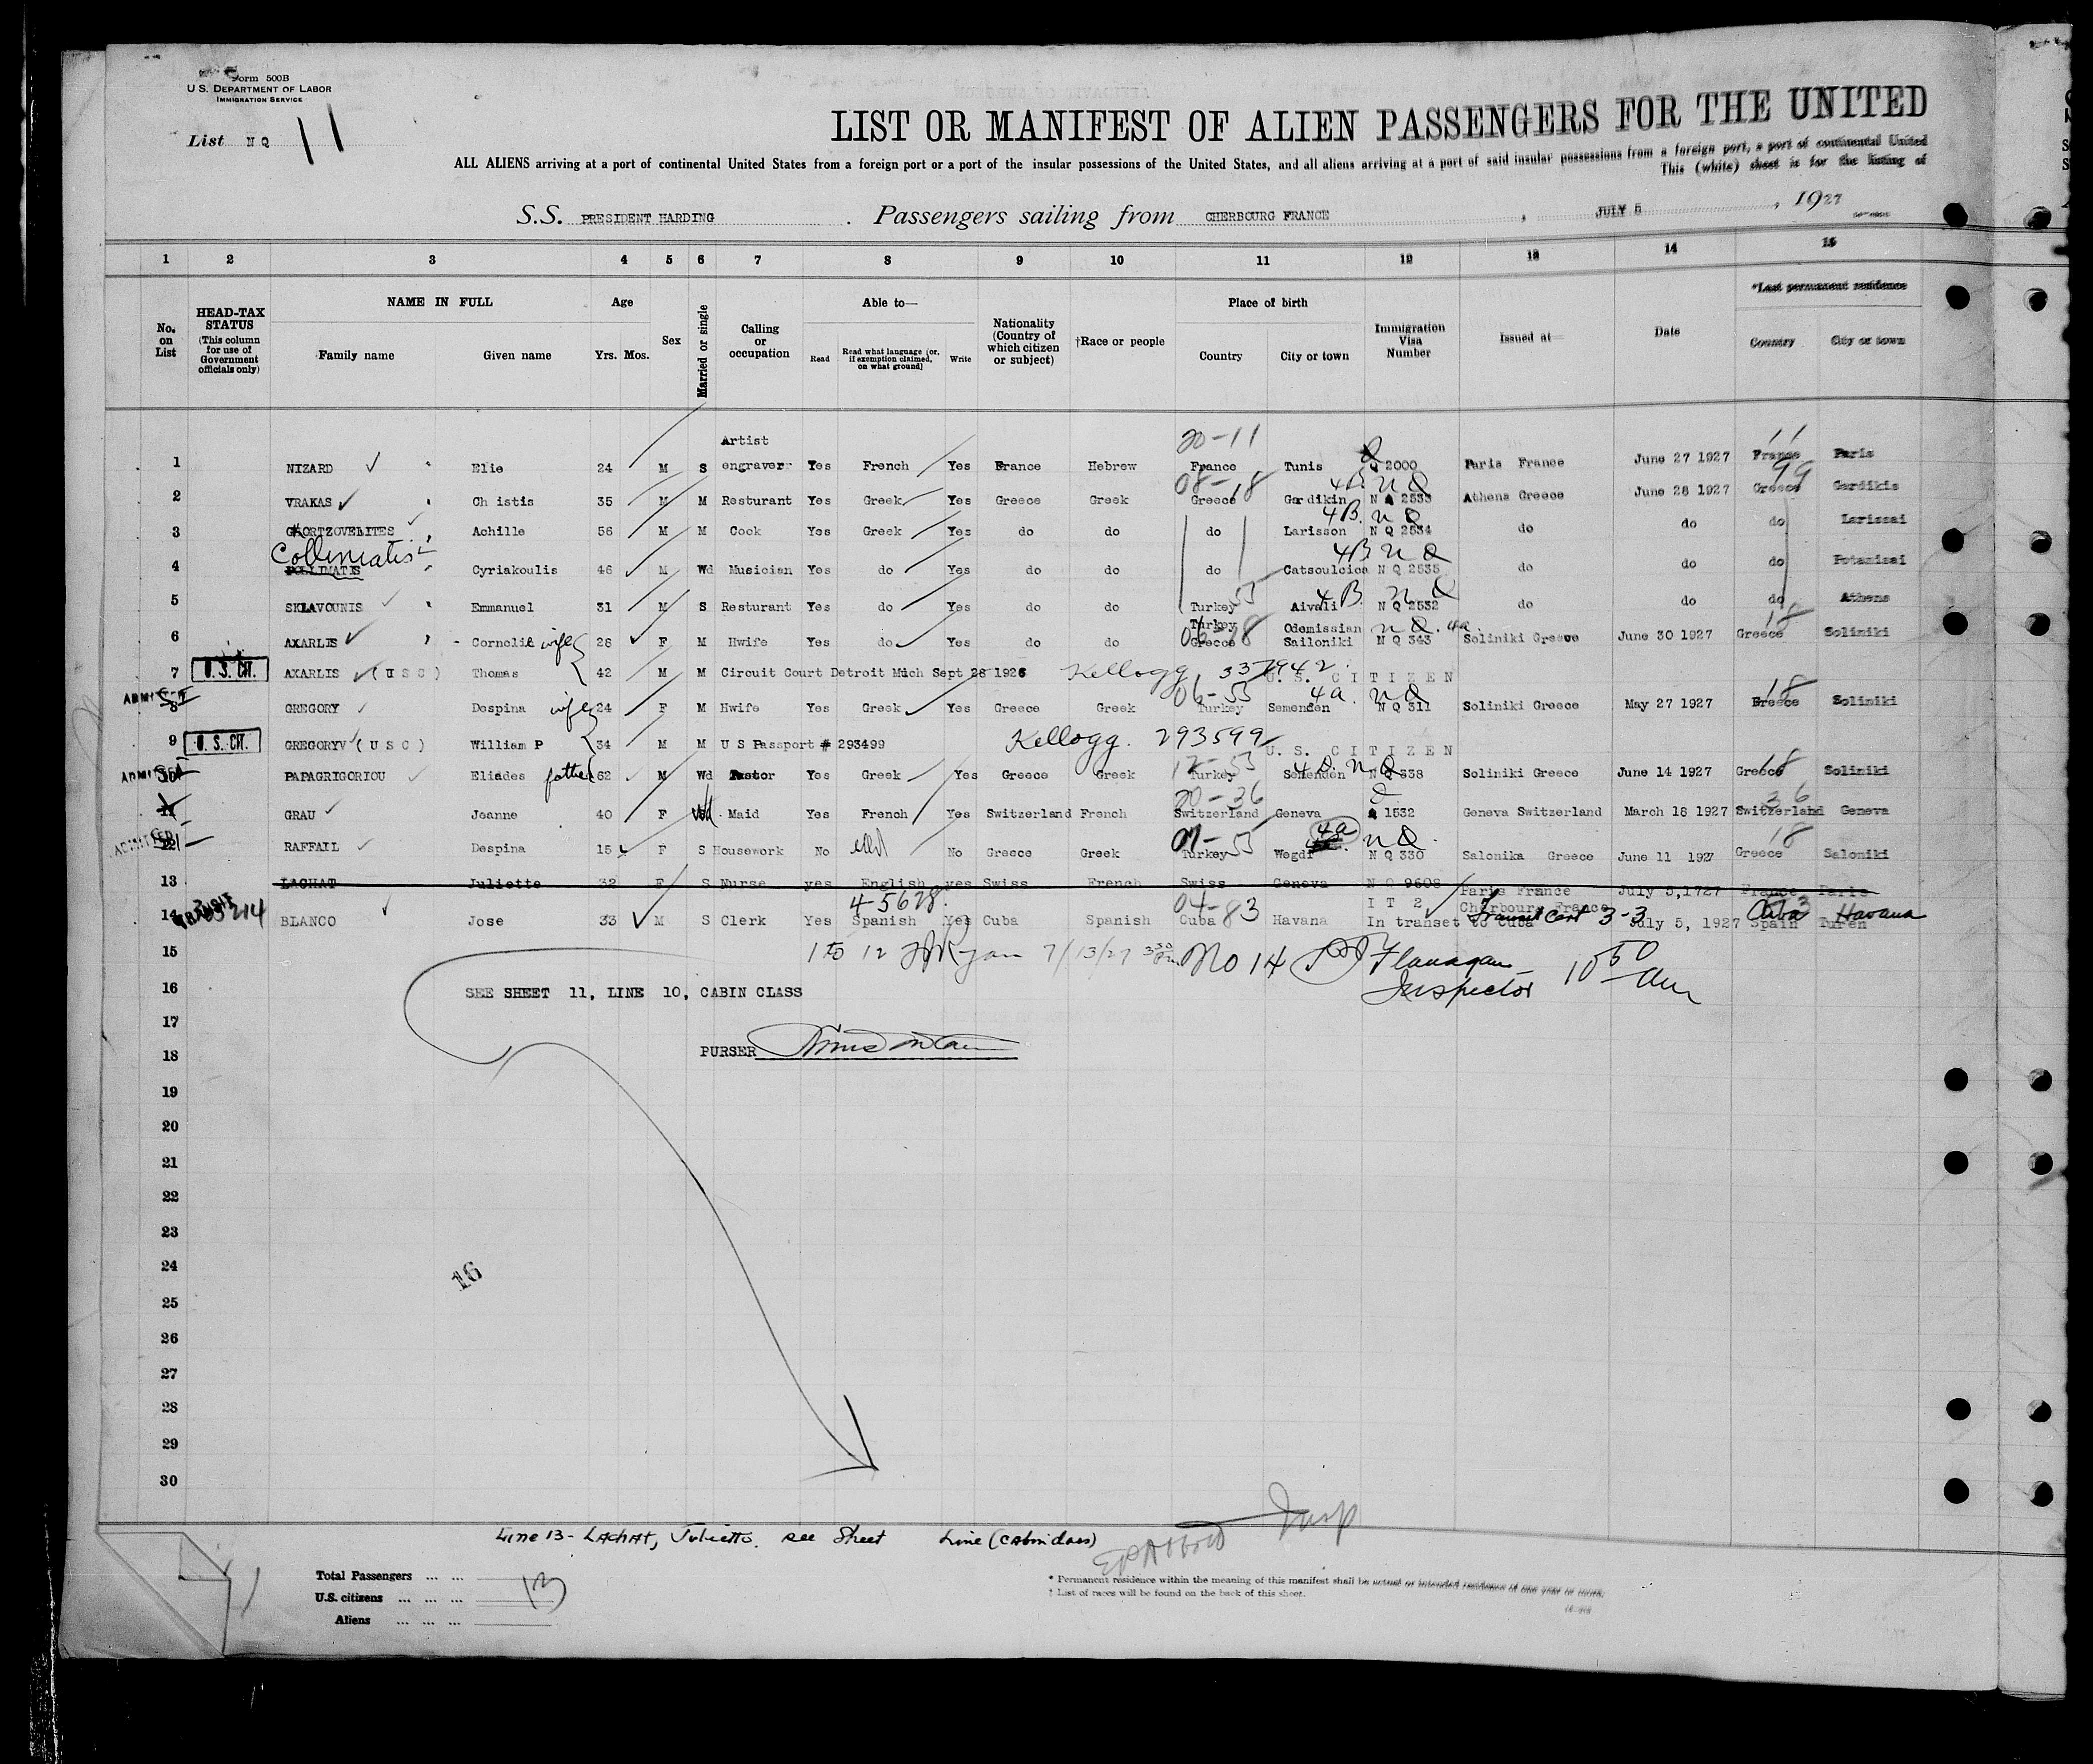 Form 500B
U. S. DEPARTMENT OF LABOR
IMMIGRATION SERVICE
List NQ 11
LIST OR MANIFEST OF ALIEN PASSENGERS FOR THE UNITED
ALL ALIENS arriving at a port of continental United States from a foreign port or a port of the insular possessions of the United States, and all aliens arriving at a port of said insular possessions from a foreign port, a port of continental United
This (white) sheet is for the listing of
S.S. PRESIDENT HARDING . Passengers sailing from CHERBOURG FRANCE , JULY 5 , 1927
1 2 3 4 5 6 7 8 9 10 11 12 13 14 15
No. on List
HEAD-TAX STATUS (This column for use of Government officials only)
NAME IN FULL
Family name Given name
Age
Yrs. Mos.
Sex
Married or single
Calling or occupation
Able to—
Read Read what language (or, if exemption claimed, on what ground) Write
Nationality (Country of which citizen or subject)
†Race or people
Place of birth
Country City or town
Immigration Visa Number
Issued at
Date
*Last permanent residence
Country City or town
Artist 20-11 11
1 NIZARD Elie 24 M S engraver Yes French Yes France Hebrew France Tunis Q 2000 Paris France June 27 1927 France Paris
08-18 NQ 99
2 VRAKAS Ch istis 35 M M Resturant Yes Greek Yes Greece Greek Greece Gardikin N Q 2533 Athens Greece June 28 1927 Greece Gardikis
4B. NQ
3 GKORTZOVELITES Achille 56 M M Cook Yes Greek Yes do do do Larisson N Q 2534 do do do Larissai
Collimatis 4B NQ
4 POLLIMATIS Cyriakoulis 46 M Wd Musician Yes do Yes do do do Catsoulcica N Q 2535 do do do Potamisai
55 4B. NQ
5 SKLAVOUNIS Emmanuel 31 M S Resturant Yes do Yes do do Turkey Aivali N Q 2532 do do do Athens
Turkey Odemissian NQ. 4a 18
6 AXARLIS Cornolie wife 28 F M Hwife Yes do Yes do do Greece Sailoniki N Q 343 Soliniki Greece June 30 1927 Greece Soliniki
7 U. S. CIT. AXARLIS (U S C) Thomas 42 M M Circuit Court Detroit Mich Sept 28 1926 Kellogg. 337942 U. S. CITIZEN
ADMITTED 06-55 4a. NQ 18
8 GREGORY Despina wife 24 F M Hwife Yes Greek Yes Greece Greek Turkey Semenden N Q 311 Soliniki Greece May 27 1927 Greece Soliniki
9 U. S. CIT. GREGORYV (U S C) William P 34 M M U S Passport # 293499 Kellogg. 293599 U. S. CITIZEN
ADMITTED 12-55 NQ 18
10 PAPAGRIGORIOU Eliades father 62 M Wd Pastor Yes Greek Yes Greece Greek Turkey Semenden N Q 338 Soliniki Greece June 14 1927 Greece Soliniki
20-36 36
11 GRAU Jeanne 40 F Wd Maid Yes French Yes Switzerland French Switzerland Geneva 1532 Geneva Switzerland March 18 1927 Switzerland Geneva
ADMITTED 55 4a NQ. 18
12 RAFFAIL Despina 15 F S Housework No No Greece Greek Turkey Wegdi N Q 330 Salonika Greece June 11 1927 Greece Saloniki
13 LACHAT Juliette 32 F S Nurse yes English yes Swiss French Swiss Geneva N Q 9608 Paris France July 5,1727 France Paris
4-5628. 04-83 I T 2 Cherbourg France
14 BLANCO Jose 33 M S Clerk Yes Spanish Yes Cuba Spanish Cuba Havana In transet to Cuba Transit Cert 3-3 July 5, 1927 Spain Turen Cuba Havana
15 1 to 12 Ryan 7/13/27 No 14 Flanagan Inspector 10 50 am
16 SEE SHEET 11, LINE 10, CABIN CLASS
17
18 PURSER
19
20
21
22
23
24
25
26
27
28
29
30
16
Line 13 - LACHAT, Juliette. see Sheet Line (cabin class)
Insp
Total Passengers ... ...
U.S. citizens ... ... ... 13
Aliens ... ... ...
* Permanent residence within the meaning of this manifest shall be actual or intended residence of one year or more.
† List of races will be found on the back of this sheet.